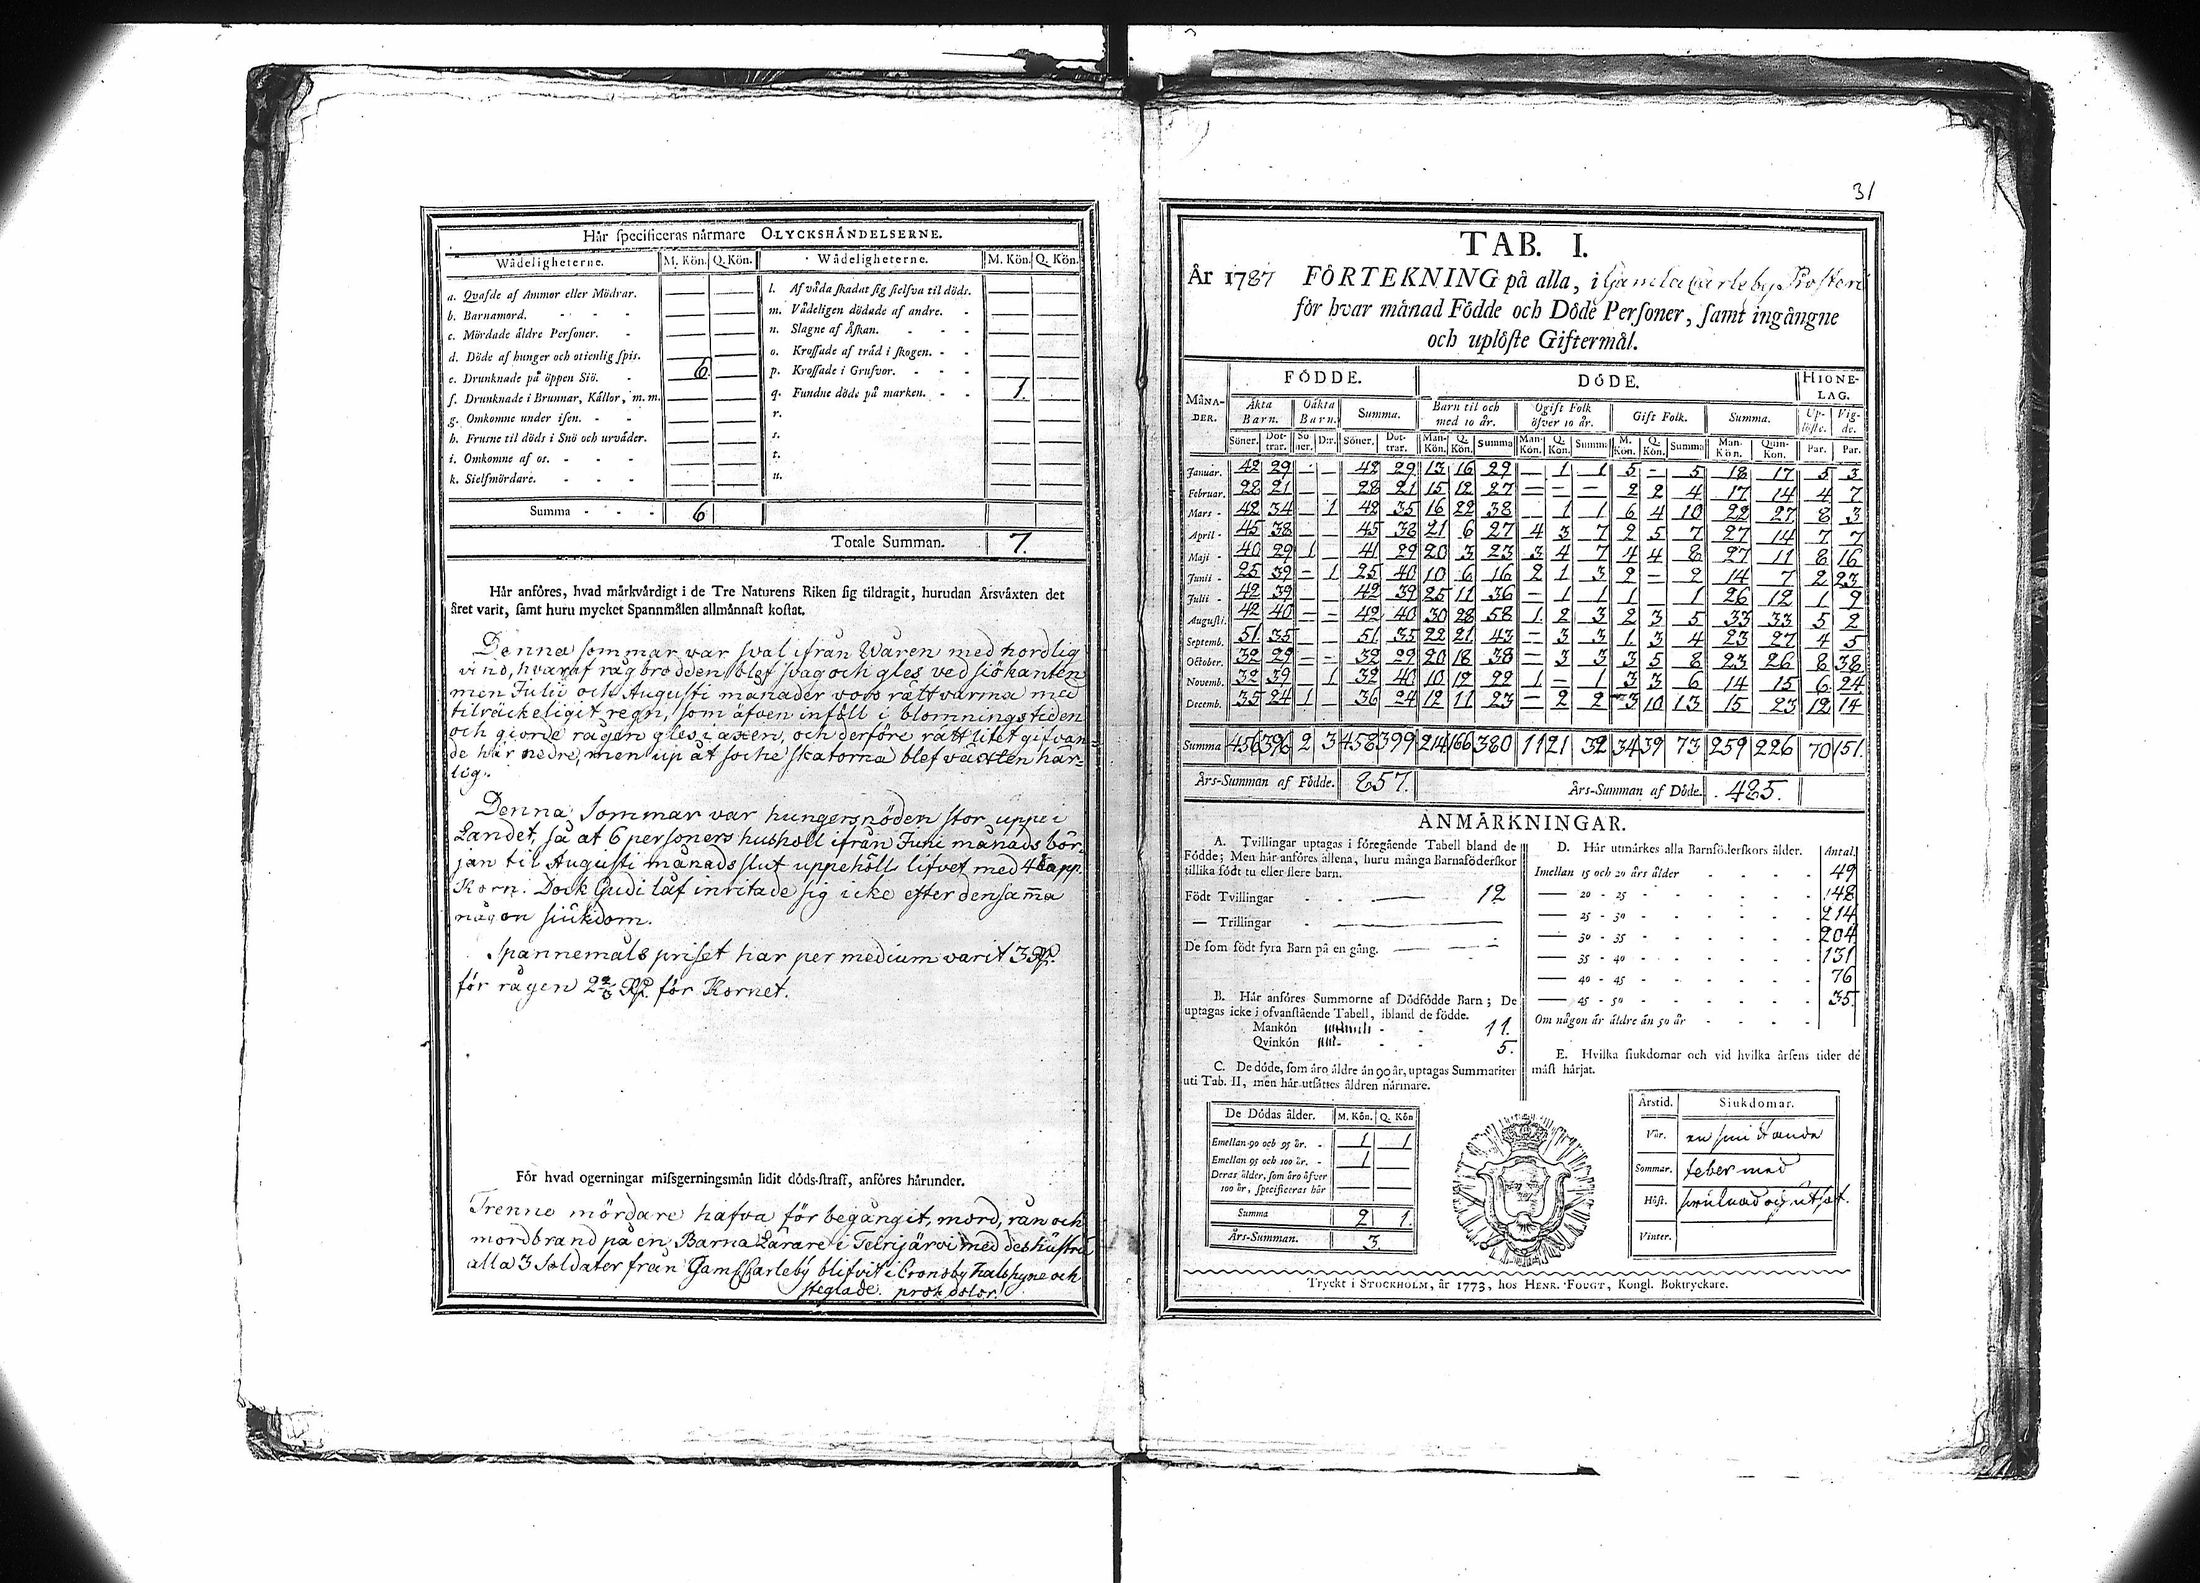 Hår specificeras nårmare OLYCKSHÅNDELSERNE.
Wådeligheterne. M. Kön. Q. Kön. Wådeligheterne. M. Kön. Q. Kön.
a. Qvafde af Ammor eller Mödrar. — — l. Af våda skadat sig sielfva til döds. — —
b. Barnamord. — — m. Vådeligen dödade af andre. — —
c. Mördade äldre Personer. — — n. Slagne af Åskan. — —
d. Döde af hunger och otienlig spis. — — o. Krossade af tråd i skogen. — —
e. Drunknade på öppen Siö. 6 — p. Krossade i Grufvor. — —
f. Drunknade i Brunnar, Källor, m. m. — — q. Fundne döde på marken. 1. —
g. Omkomne under isen. — — r. — —
h. Frusne til döds i Snö och urväder. — — s. — —
i. Omkomne af os. — — t. — —
k. Sielfmördare. — — u. — —
Summa - - - 6
Totale Summan. 7.
Hår anföres, hvad mårkvårdigt i de Tre Naturens Riken sig tildragit, hurudan Årsväxten det
året varit, samt huru mycket Spannmålen allmånnast kostat.
Denna sommar var sval ifrån Våren med nordlig
vind, hvaraf rågbrodden blef svag och gles ved siökanten
men Julii och Augusti månader voro rätt varma med
tilräckeligit regn, som äfven inföll i blomningstiden
och giorde rågen gles i axen, och derföre rätt litet gifvan=
de här nedre, men up åt sockneskatorna blef växten här=
lig.
Denna Sommar var hungersnöden stor uppe i
Landet, så at 6 personers hushåll ifrån Juni månads bör=
jan til Augusti månads slut uppehöll lifvet med 4 kapp.
Korn. Dock Gudi låf inritade sig icke efter densam̅a
någon siukdom.
Spannemåls priset har per medium varit 3 Rd.
för rågen 2 2/3 Rd. för Kornet.
För hvad ogerningar missgerningsmån lidit döds-straff, anföres hårunder.
Trenne mördare hafva för begångit, mord, rån och
mordbrand på en Barna Lärare i Terijärvi med des hustru
alla 3 Soldater från Gaml Carleby blifvit i Cronoby halshugne och
steglade. proh dolor!
31
TAB. I.
År 1787 FÖRTEKNING på alla, i Gamla Carleby Prosteri
för hvar månad Födde och Döde Personer, samt ingångne
och uplöste Giftermål.
MÅNADER. FÖDDE. DÖDE. HIONELAG.
Äkta Barn. Oäkta Barn. Summa. Barn til och med 10 år. Ogift Folk öfver 10 år. Gift Folk. Summa. Uplöste. Vigde.
Söner. Dottrar. Söner. Dtr. Söner. Dottrar. Man-Kön. Q. Kön. Summa Man-Kön. Q. Kön. Summa M. Kön. Q. Kön. Summa Man-Kön. Quin-Kon. Par. Par.
Januar. 42 29 - — 42 29 13 16 29 — 1 1 5 - 5 18 17 5 3
Februar. 28 21 — — 28 21 15 12 27 — — — 2 2 4 17 14 4 7
Mars - 42 34 — 1 42 35 16 22 38 — 1 1 6 4 10 22 27 8 3
April - 45 38 — — 45 38 21 6 27 4 3 7 2 5 7 27 14 7 7
Maji - 40 29 1 — 41 29 20 3 23 3 4 7 4 4 8 27 11 8 16
Junii - 25 39 — 1 25 40 10 6 16 2 1 3 2 — 2 14 7 2 23
Julii - 42 39 — — 42 39 25 11 36 — 1 1 1 — 1 26 12 1 9
Augusti. 42 40 — — 42 40 30 28 58 1 2 3 2 3 5 33 33 5 2
Septemb. 51 35 — — 51 35 22 21 43 — 3 3 1 3 4 23 27 4 5
October. 32 29 — — 32 29 20 18 38 — 3 3 3 5 8 23 26 8 38
Novemb. 32 39 — 1 32 40 10 12 22 1 — 1 3 3 6 14 15 6 24
Decemb. 35 24 1 — 36 24 12 11 23 — 2 2 3 10 13 15 23 12 14
Summa 456 396 2 3 458 399 214 166 380 11 21 32 34 39 73 259 226 70 151.
Års-Summan af Födde. 857. Års-Summan af Döde. 485.
ANMÅRKNINGAR.
A. Tvillingar uptagas i föregående Tabell bland de
Födde; Men hår anföres allena, huru många Barnaföderskor
tillika födt tu eller flere barn.
Födt Tvillingar 12
— Trillingar —
De som födt fyra Barn på en gång. —
B. Hår anföres Summorne af Dödfödde Barn; De
uptagas icke i ofvanstående Tabell, ibland de födde.
Mankön 11.
Qvinkön 5.
C. De döde, som åro åldre ån 90 år, uptagas Summariter
uti Tab. II, men hår utsättes åldren nårmare.
De Dödas ålder. M. Kön. Q. Kön
Emellan 90 och 95 år. 1 1
Emellan 95 och 100 år. 1 —
Deras ålder, som äro öfver
100 år, specificeras hår
Summa 2 1.
Års-Summan. 3.
D. Hår utmårkes alla Barnföderskors ålder. Antal.
Imellan 15 och 20 års ålder 49
— 20 - 25 148
— 25 - 30 214
— 30 - 35 204
— 35 - 40 131
— 40 - 45 76
— 45 - 50 35.
Om någon är äldre än 50 år
E. Hvilka siukdomar och vid hvilka årsens tider de
måst hårjat.
Årstid. Siukdomar.
Vår. en smittande
Sommar. feber med
Höst. och utslät.
Vinter.
Tryckt i STOCKHOLM, år 1773, hos HENR. FOUGT, Kongl. Boktryckare.